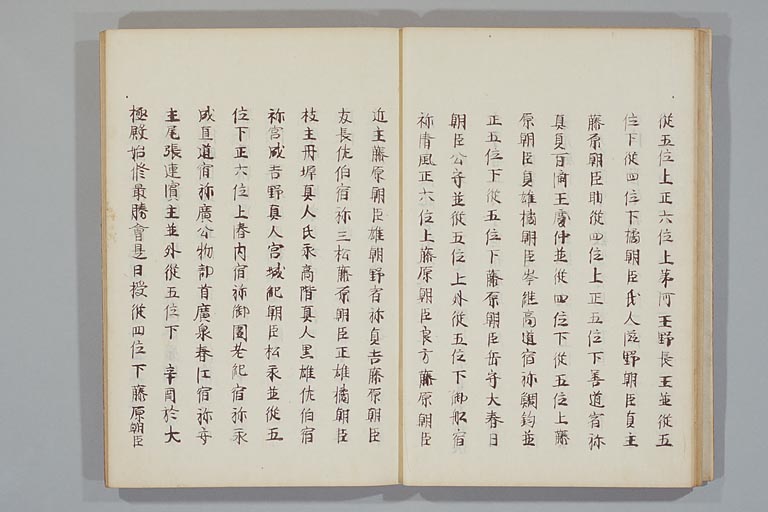 従五位上正六位上茅河王野長王並従五
位下従四位下橘朝臣氏人滋野朝臣貞主
藤原朝臣助従四位上正五位下善道宿祢
真貞百済王慶仲並従四位下従五位上藤
原朝臣貞雄橘朝臣岑継高道宿祢鯛釣並
正五位下従五位下藤原朝臣岳守大春日
朝臣公守並従五位上外従五位下御船宿
祢清風正六位上藤原朝臣良方藤原朝臣
近主藤原朝臣雄朝野宿祢貞吉藤原朝臣
友長佐伯宿祢三松藤原朝臣正雄橘朝臣
枝主丹墀真人氏永高階真人黒雄佐伯宿
祢宮成吉野真人宮城紀朝臣松永並従五
位下正六位上春内宿祢御園老紀宿祢永
成直道宿祢廣公物部首廣泉春江宿祢安
主尾張連濱主並外従五位下 辛酉於大
極殿始修最勝會是日授従四位下藤原朝臣